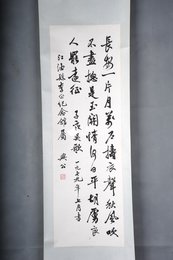 長安一片月萬户擣衣聲秋風吹
不盡總是玉關情何日平胡虜良
人罷遠征
子夜吴歌 一九七九年七月書
江油縣李白纪念館屬